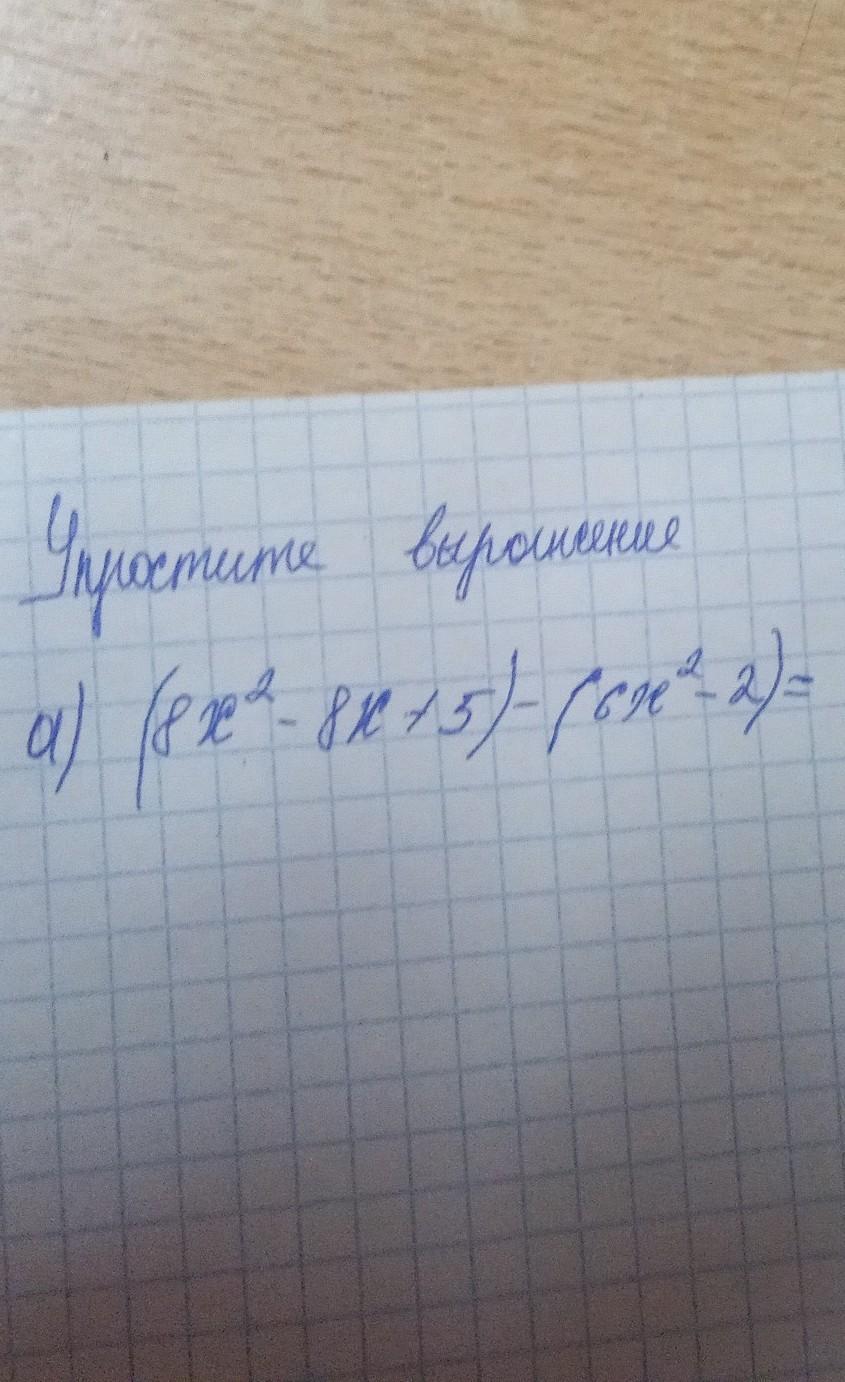 Упростите выражение
а) (8х² - 8х + 5) - (6х² - 2) =